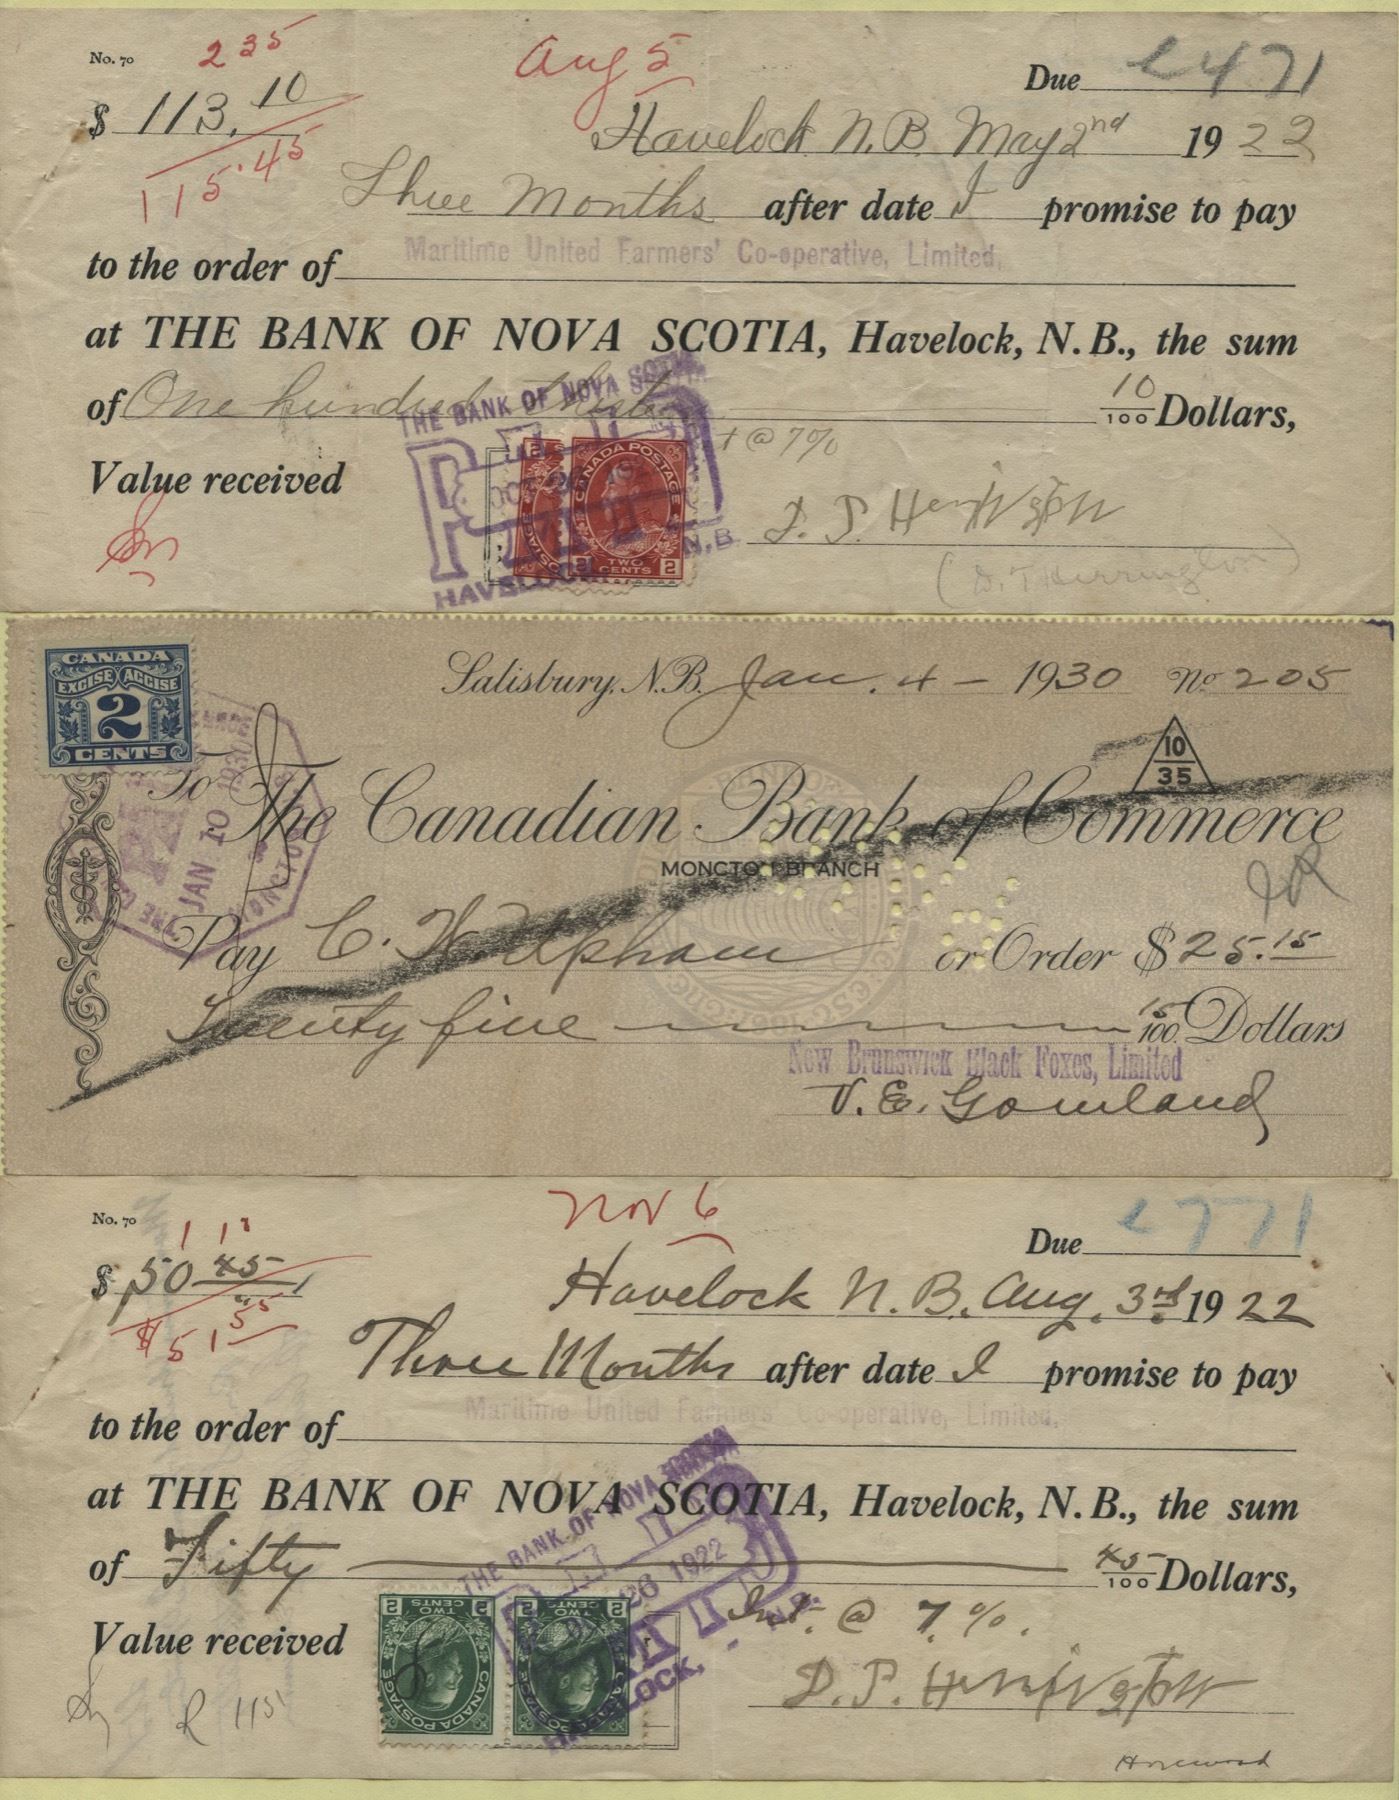 No. 70
2 35
Aug 5
Due e471
$ 113.10
115.45
Havelock N.B. May 2nd 1922
Three Months after date I promise to pay
to the order of Maritime United Farmers' Co-operative, Limited,
at THE BANK OF NOVA SCOTIA, Havelock, N.B., the sum
of One hundred 10/100 Dollars,
THE BANK OF NOVA SCOTIA
PAID
HAVELOCK N.B
@ 7%
CANADA POSTAGE
TWO CENTS
2 2
Value received
D. T. Herrington
(D. T Herrington)
CANADA
EXCISE ACCISE
2
CENTS
Salisbury, N.B. Jan. 4 - 1930 No 205
10
35
To The Canadian Bank of Commerce
MONCTON BRANCH
JAN 10 1930
MONCTON
Pay C. W. Upham or Order $25.15
Twenty five 15/100 Dollars
New Brunswick Black Foxes, Limited
V. E. Gowland
No. 70
1 1
Nov 6
Due e771
$ 50 45
$51 55
Havelock N.B. Aug. 3rd 1922
Three Months after date I promise to pay
to the order of Maritime United Farmers Co-operative, Limited,
at THE BANK OF NOVA SCOTIA, Havelock, N.B., the sum
of Fifty 45/100 Dollars,
THE BANK OF NOVA SCOTIA
PAID
26 1922
HAVELOCK, N.B.
Int. @ 7%.
Value received
2 TWO CENTS 2
CANADA POSTAGE
2 TWO CENTS 2
CANADA POSTAGE
D. T. Herrington
R 115